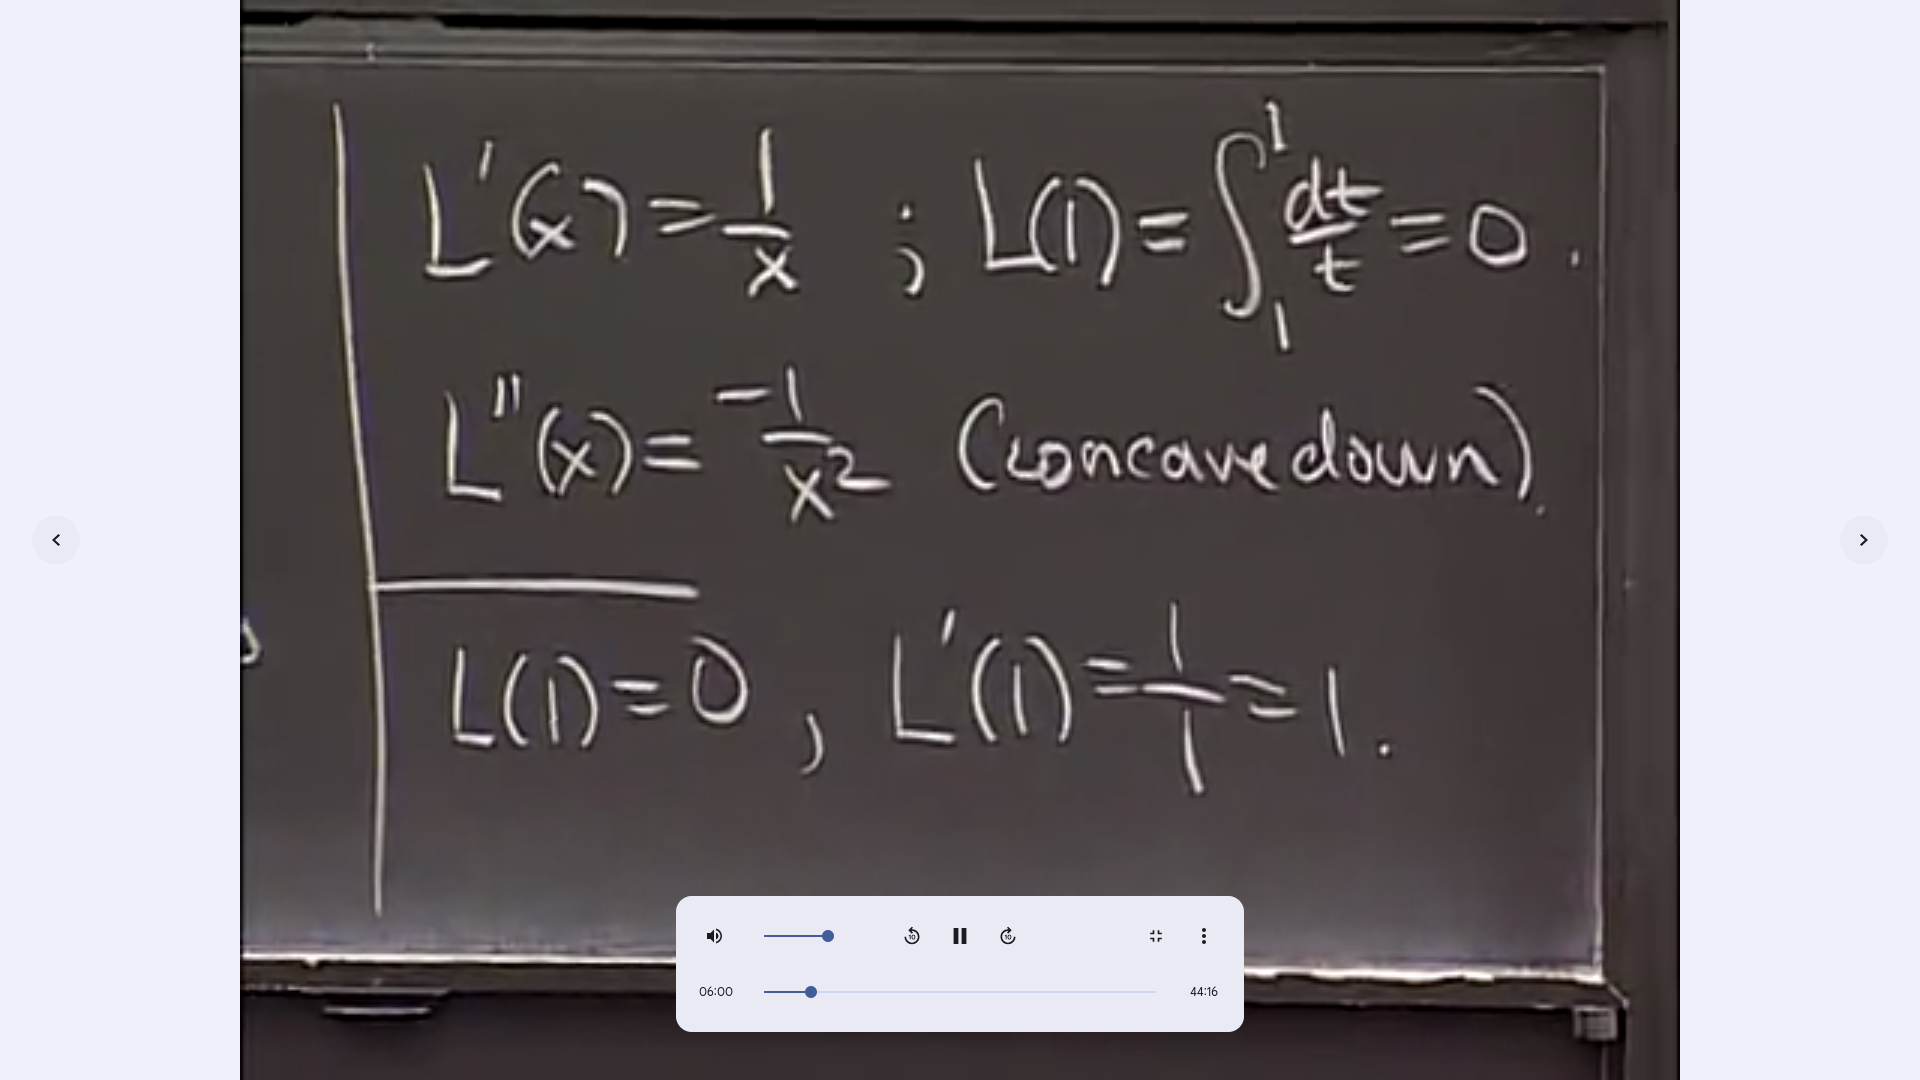 L'(x) = 1/x ; L(1) = ∫₁¹ dt/t = 0.
L''(x) = -1/x² (concave down).
L(1) = 0 , L'(1) = 1/1 = 1.
10 10
06:00 44:16